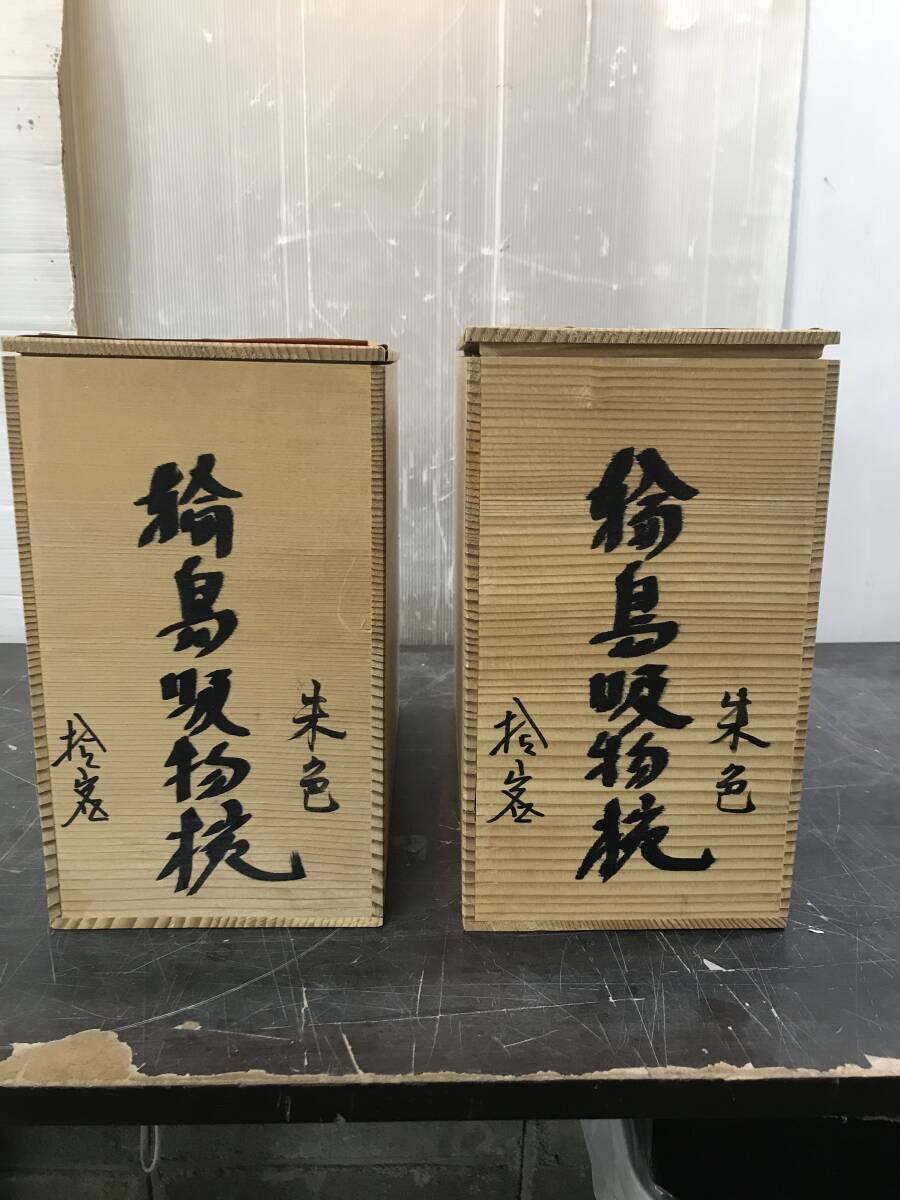 朱色
輪島吸物椀
拾客
朱色
輪島吸物椀
拾客